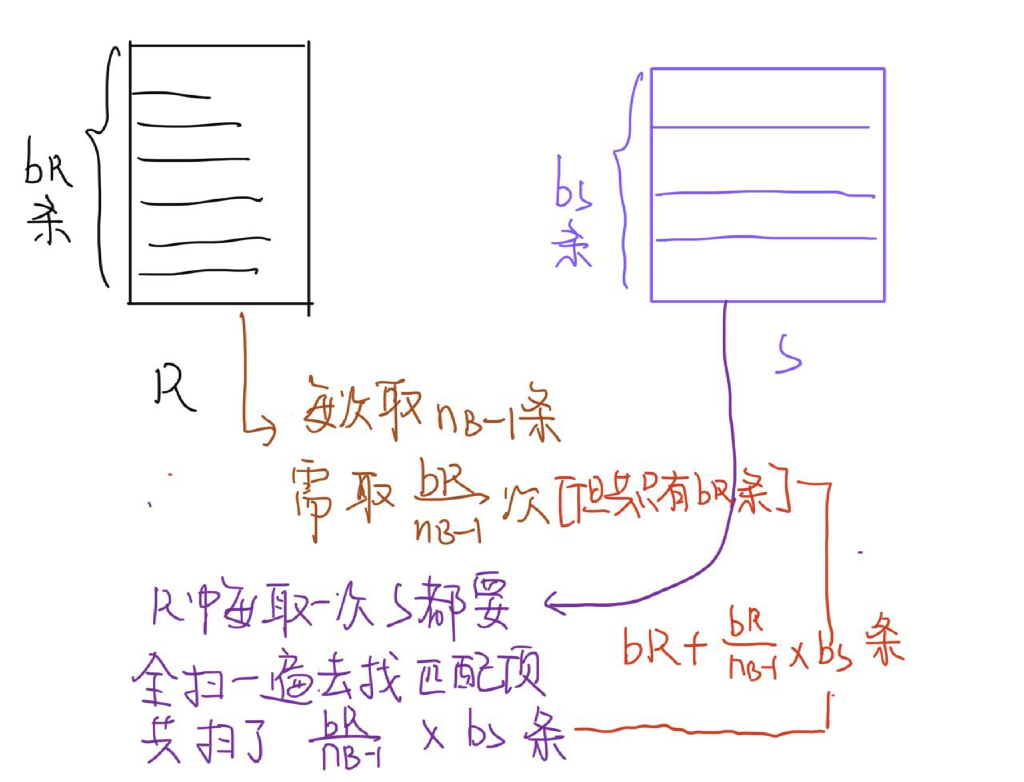 bR
条
bs
条
R
S
每次取 nB-1条
需取 bR/nB-1 次 [但共只有bR条]
R中每取一次S都要
全扫一遍去找匹配项
共扫了 bR/nB-1 × bs 条
bR + bR/nB-1 × bs 条